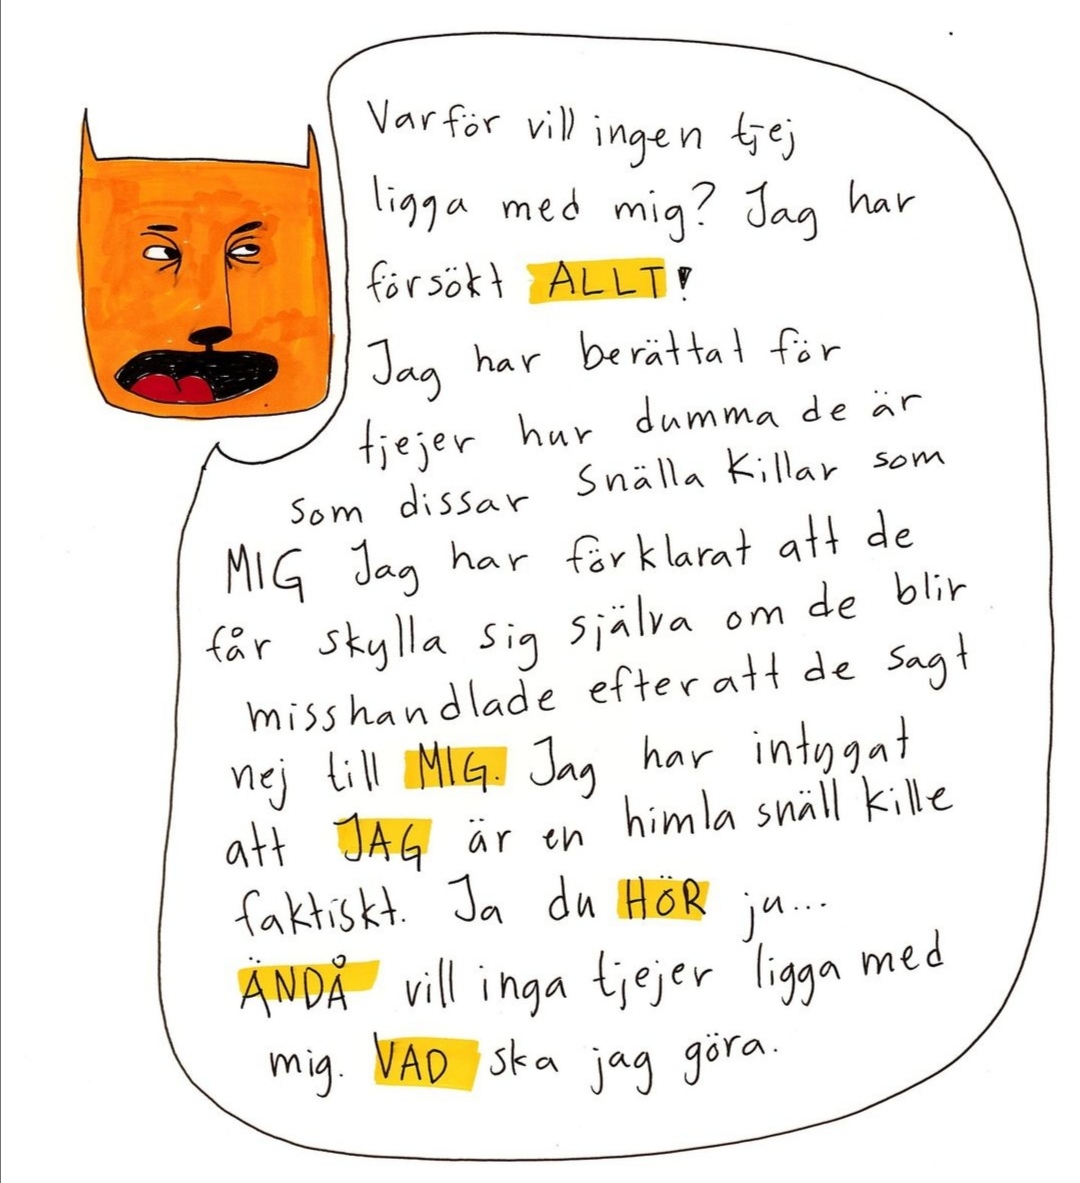 Varför vill ingen tjej
ligga med mig? Jag har
försökt ALLT!
Jag har berättat för
tjejer hur dumma de är
som dissar snälla killar som
MIG Jag har förklarat att de
får skylla sig själva om de blir
misshandlade efter att de sagt
nej till MIG. Jag har intygat
att JAG är en himla snäll kille
faktiskt. Ja du HÖR ju...
ÄNDÅ vill inga tjejer ligga med
mig. VAD ska jag göra.